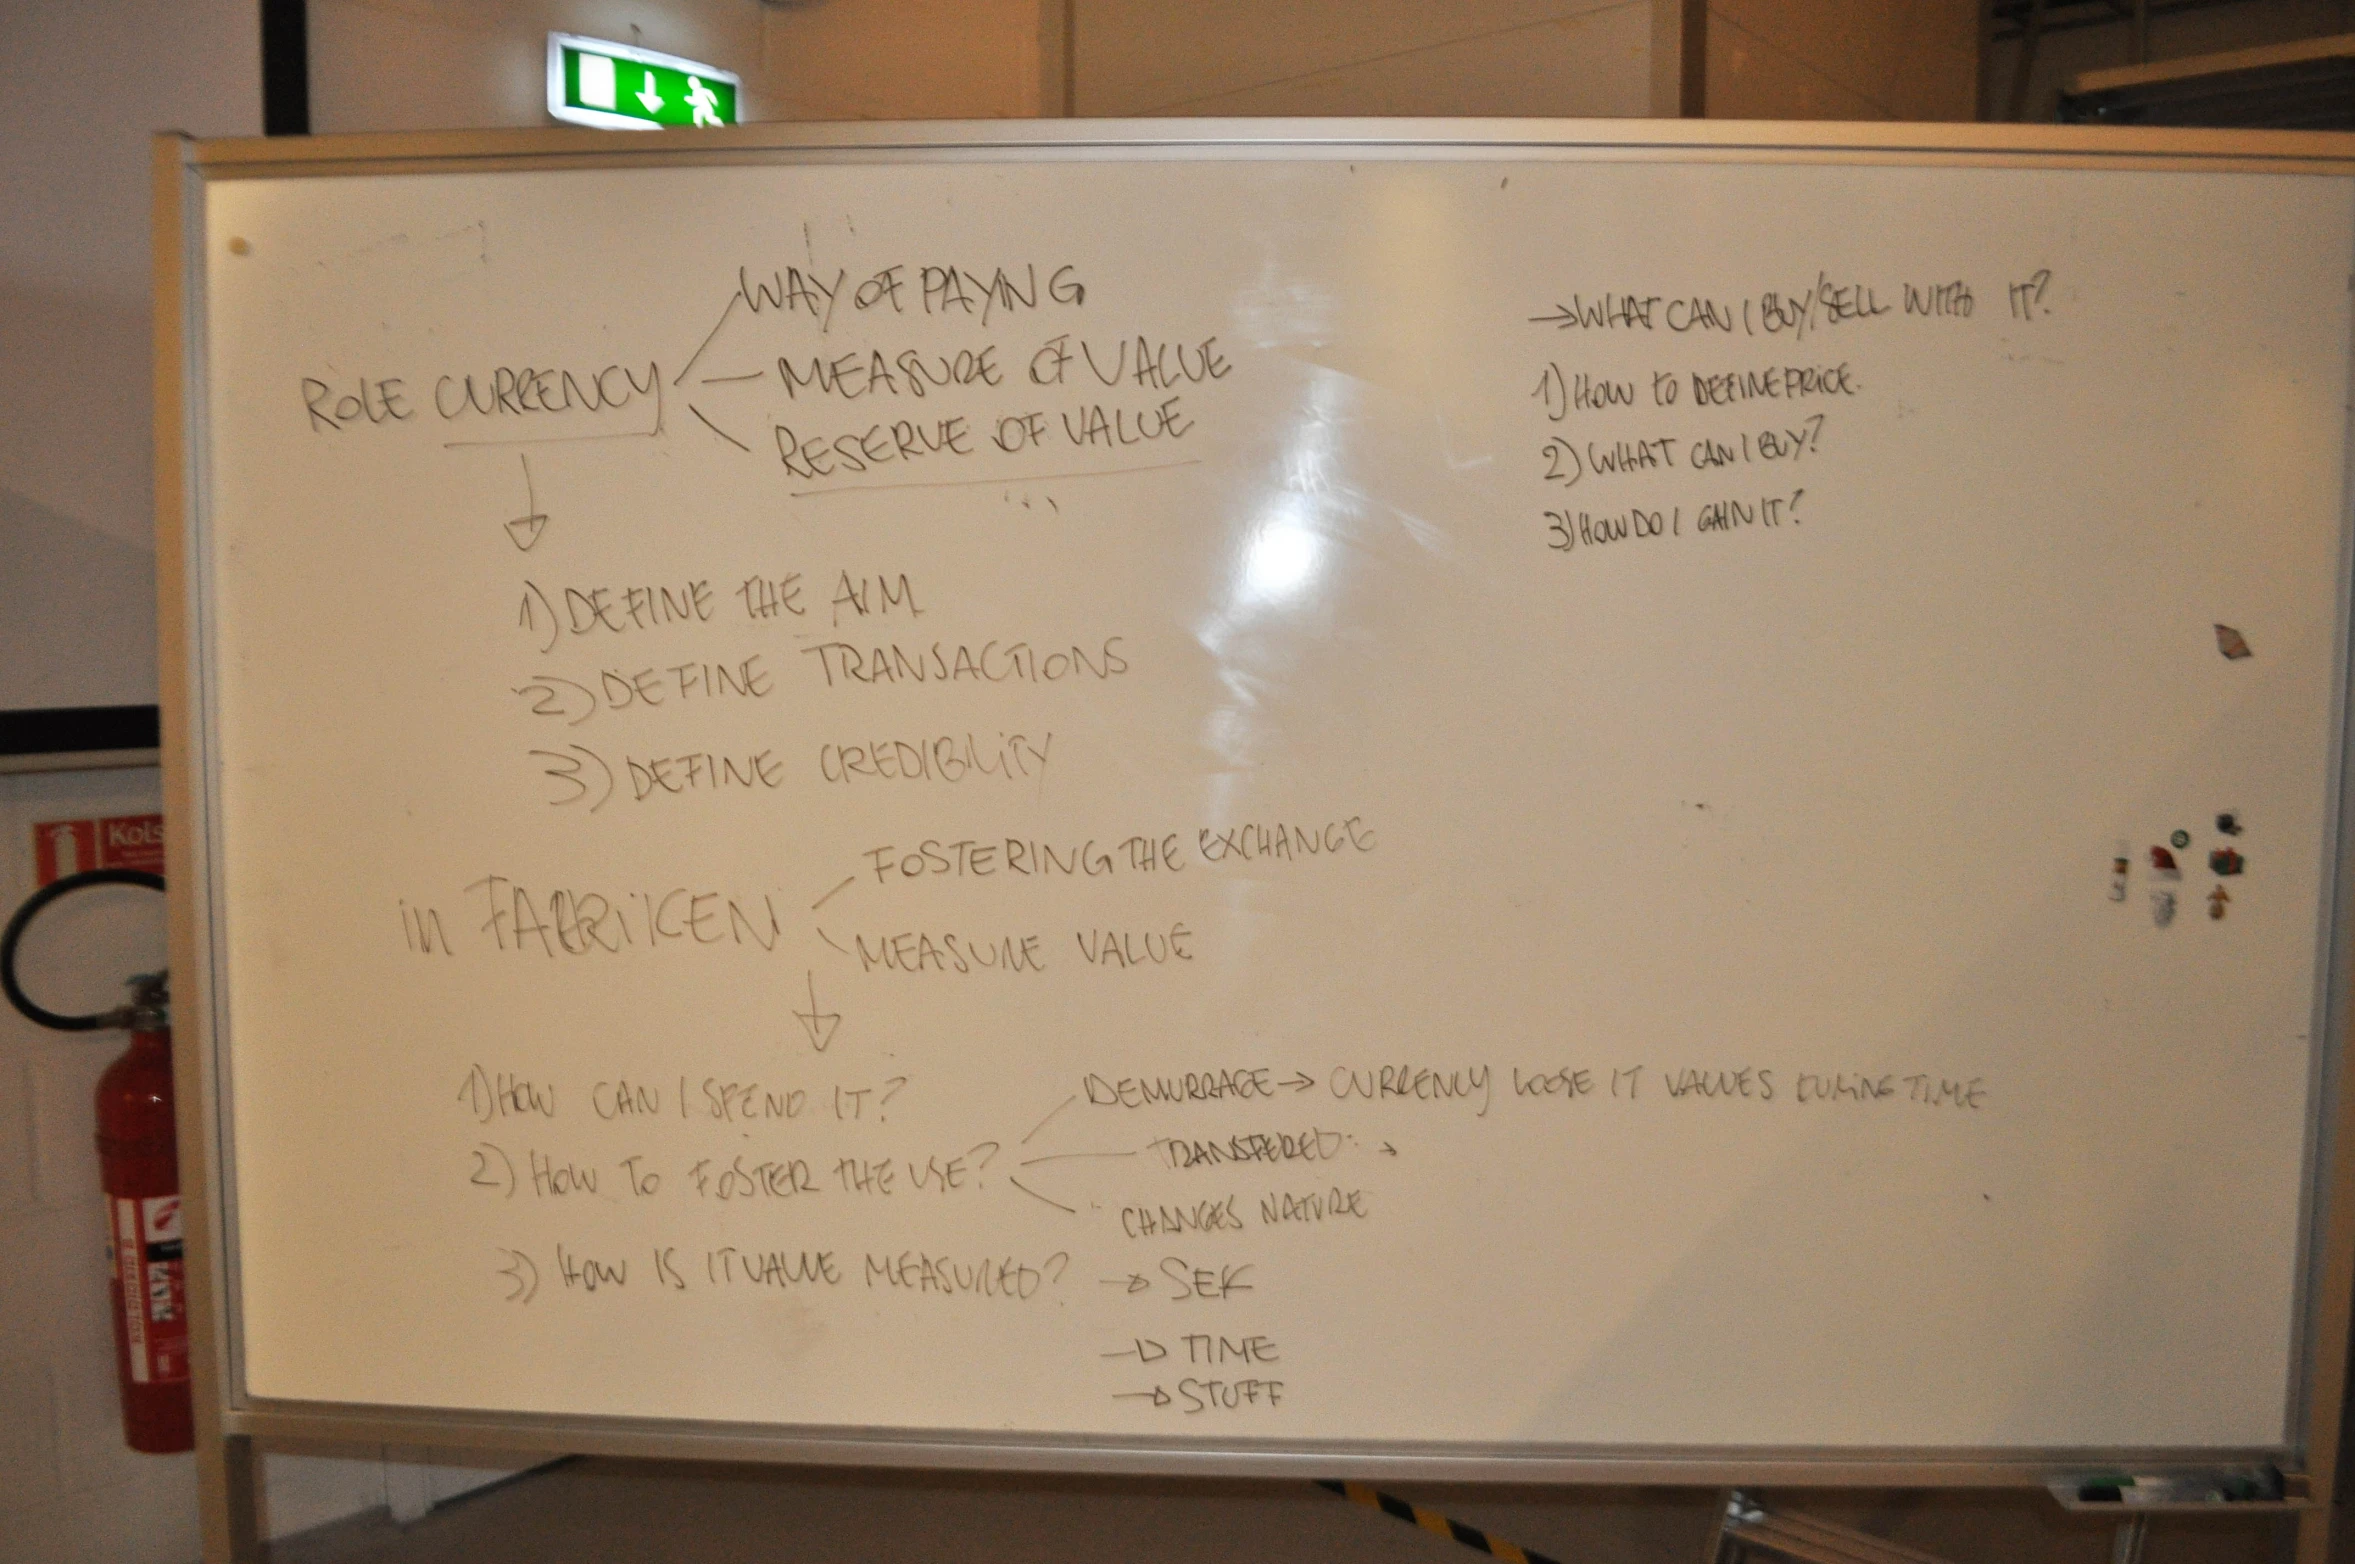 WAY OF PAYING
ROLE CURRENCY
MEASURE OF VALUE
RESERVE OF VALUE
1) DEFINE THE AIM
2) DEFINE TRANSACTIONS
3) DEFINE CREDIBILITY
in FABRIKEN
FOSTERING THE EXCHANGE
MEASURE VALUE
1) HOW CAN I SPEND IT?
2) HOW TO FOSTER THE USE?
DEMURRAGE → CURRENCY LOOSE IT VALUES DURING TIME
TRANSFERED: →
CHANGES NATURE
3) HOW IS IT VALUE MEASURED?
→ SEK
→ TIME
→ STUFF
→ WHAT CAN I BUY/SELL WITH IT?
1) HOW TO DEFINE PRICE.
2) WHAT CAN I BUY?
3) HOW DO I GAIN IT?
Kols